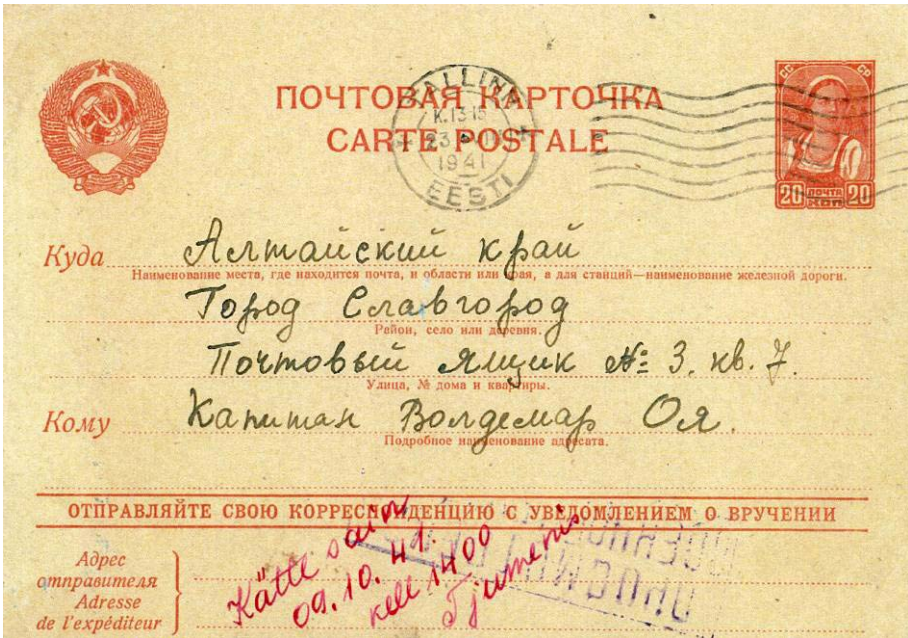 ПОЧТОВАЯ КАРТОЧКА
CARTE POSTALE
TALLINN
K. 13-15
23
1941
EESTI
СС СР
20 ПОЧТА 20
КОП
Куда Алтайский край
Наименование места, где находится почта, и области или края, а для станций—наименование железной дороги.
Город Славгород
Район, село или деревня.
Почтовый ящик № 3. кв. 7.
Улица, № дома и квартиры.
Кому Капитан Волдемар Оя.
Подробное наименование адресата.
ОТПРАВЛЯЙТЕ СВОЮ КОРРЕСПОНДЕНЦИЮ С УВЕДОМЛЕНИЕМ О ВРУЧЕНИИ
Kätte sain
09.10.41.
kell 1400
Tjumenis
Адрес
отправителя
Adresse
de l'expéditeur